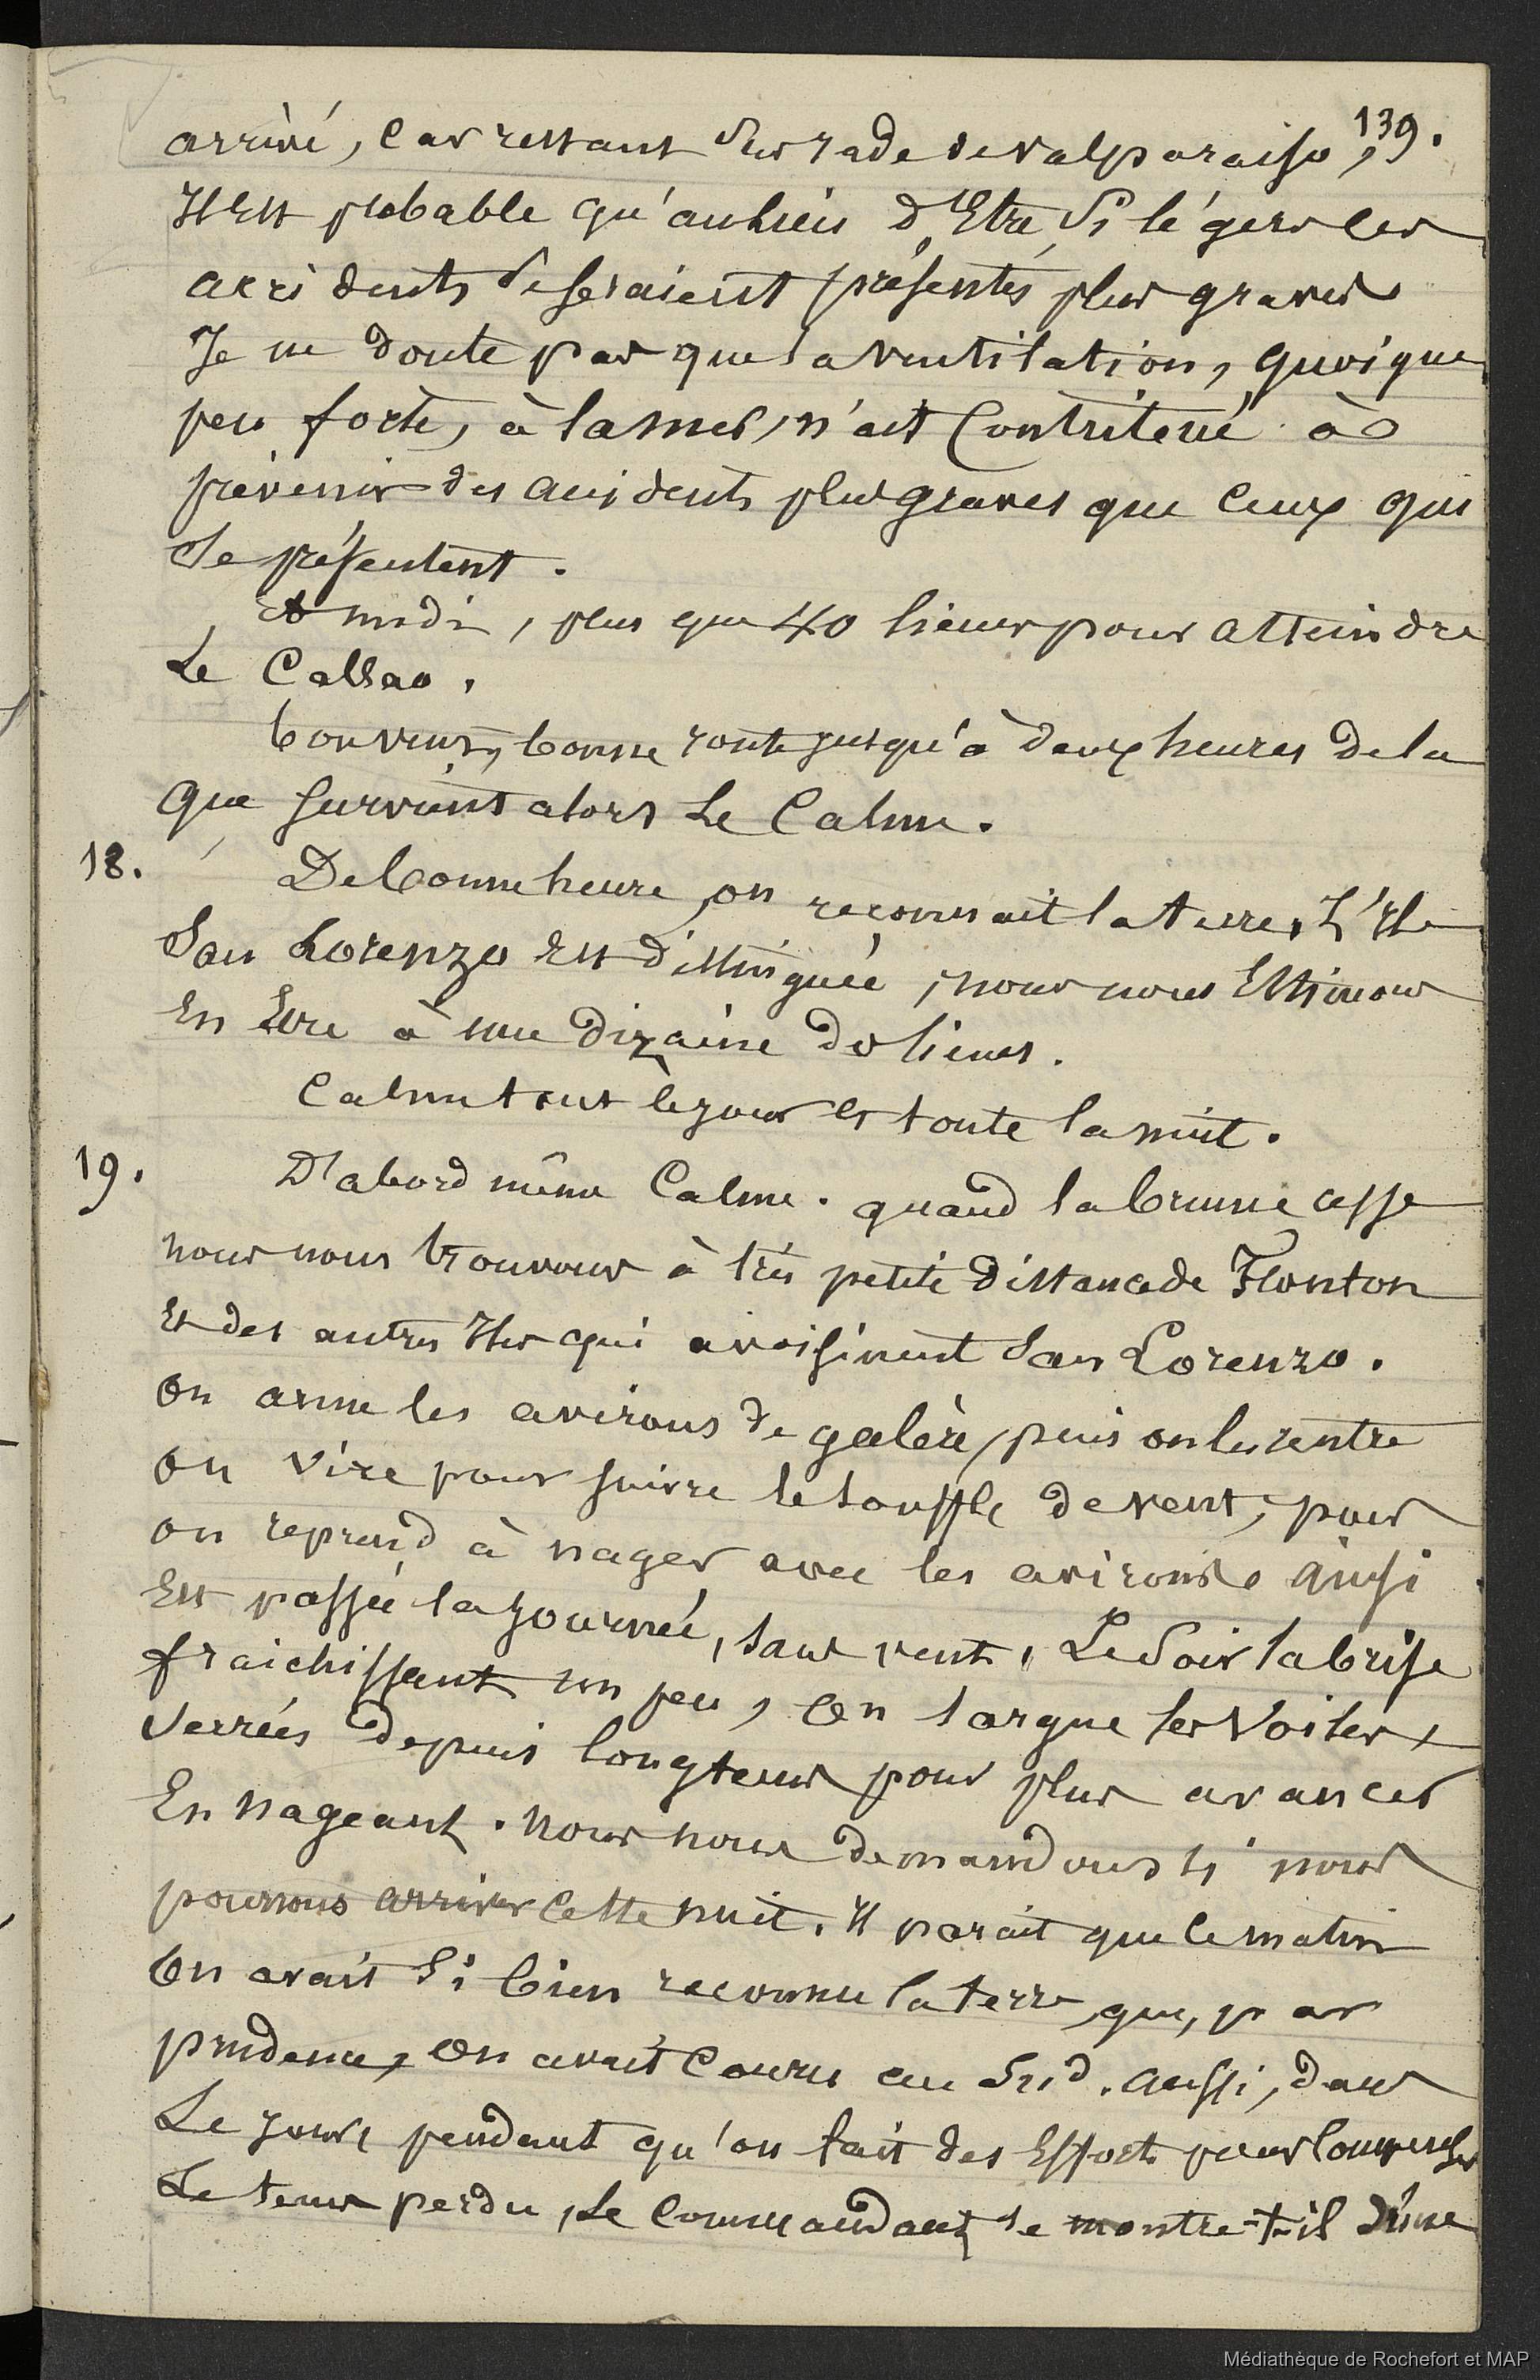 139.
arrivé, car restant sur rade de valparaiso,
Il Est probable qu'au lieu d'Etre si légers les
accidents se seraient présentés plus graves
Je ne doute pas que la ventilation, quoique
peu forte, à la mer, n'ait Contribué à
prévenir des accidents plus graves que ceux qui
se présentent.
A midi, plus que 40 lieues pour atteindre
Le Callao.
bon vent, bonne route jusqu'à deux heures de la
que survint alors Le Calme.
18. De bonne heure, on reconnait la terre, L'Ile
San Lorenzo Est distinguée, nous nous Estimons
En Etre à une dizaine de lieues.
Calme tout le jour et toute la nuit.
19. D'abord même Calme. quand la brume cesse
nous nous trouvons à très petite distance de
Et des autres Iles qui avoisinent San Lorenzo.
on arme les avirons de galère, puis on les rentre
on vire pour suivre le souffle de vent, puis
on reprend à nager avec les avirons. ainsi
Est passée la journée, sans vent. Le Soir la brise
fraichissant un peu, on largue les voiles
serrées depuis longtems pour plus avancer
En nageant. nous nous demandons si nous
pourrons arriver cette nuit. Il parait que le matin
on avait si bien reconnu la terre, que, par
prudence, on avait couru au Sud. aussi, dans
Le jour, pendant qu'on fait des Efforts pour compenser
Le tems perdu, Le commandant se montre-t-il d'une
Médiathèque de Rochefort et MAP